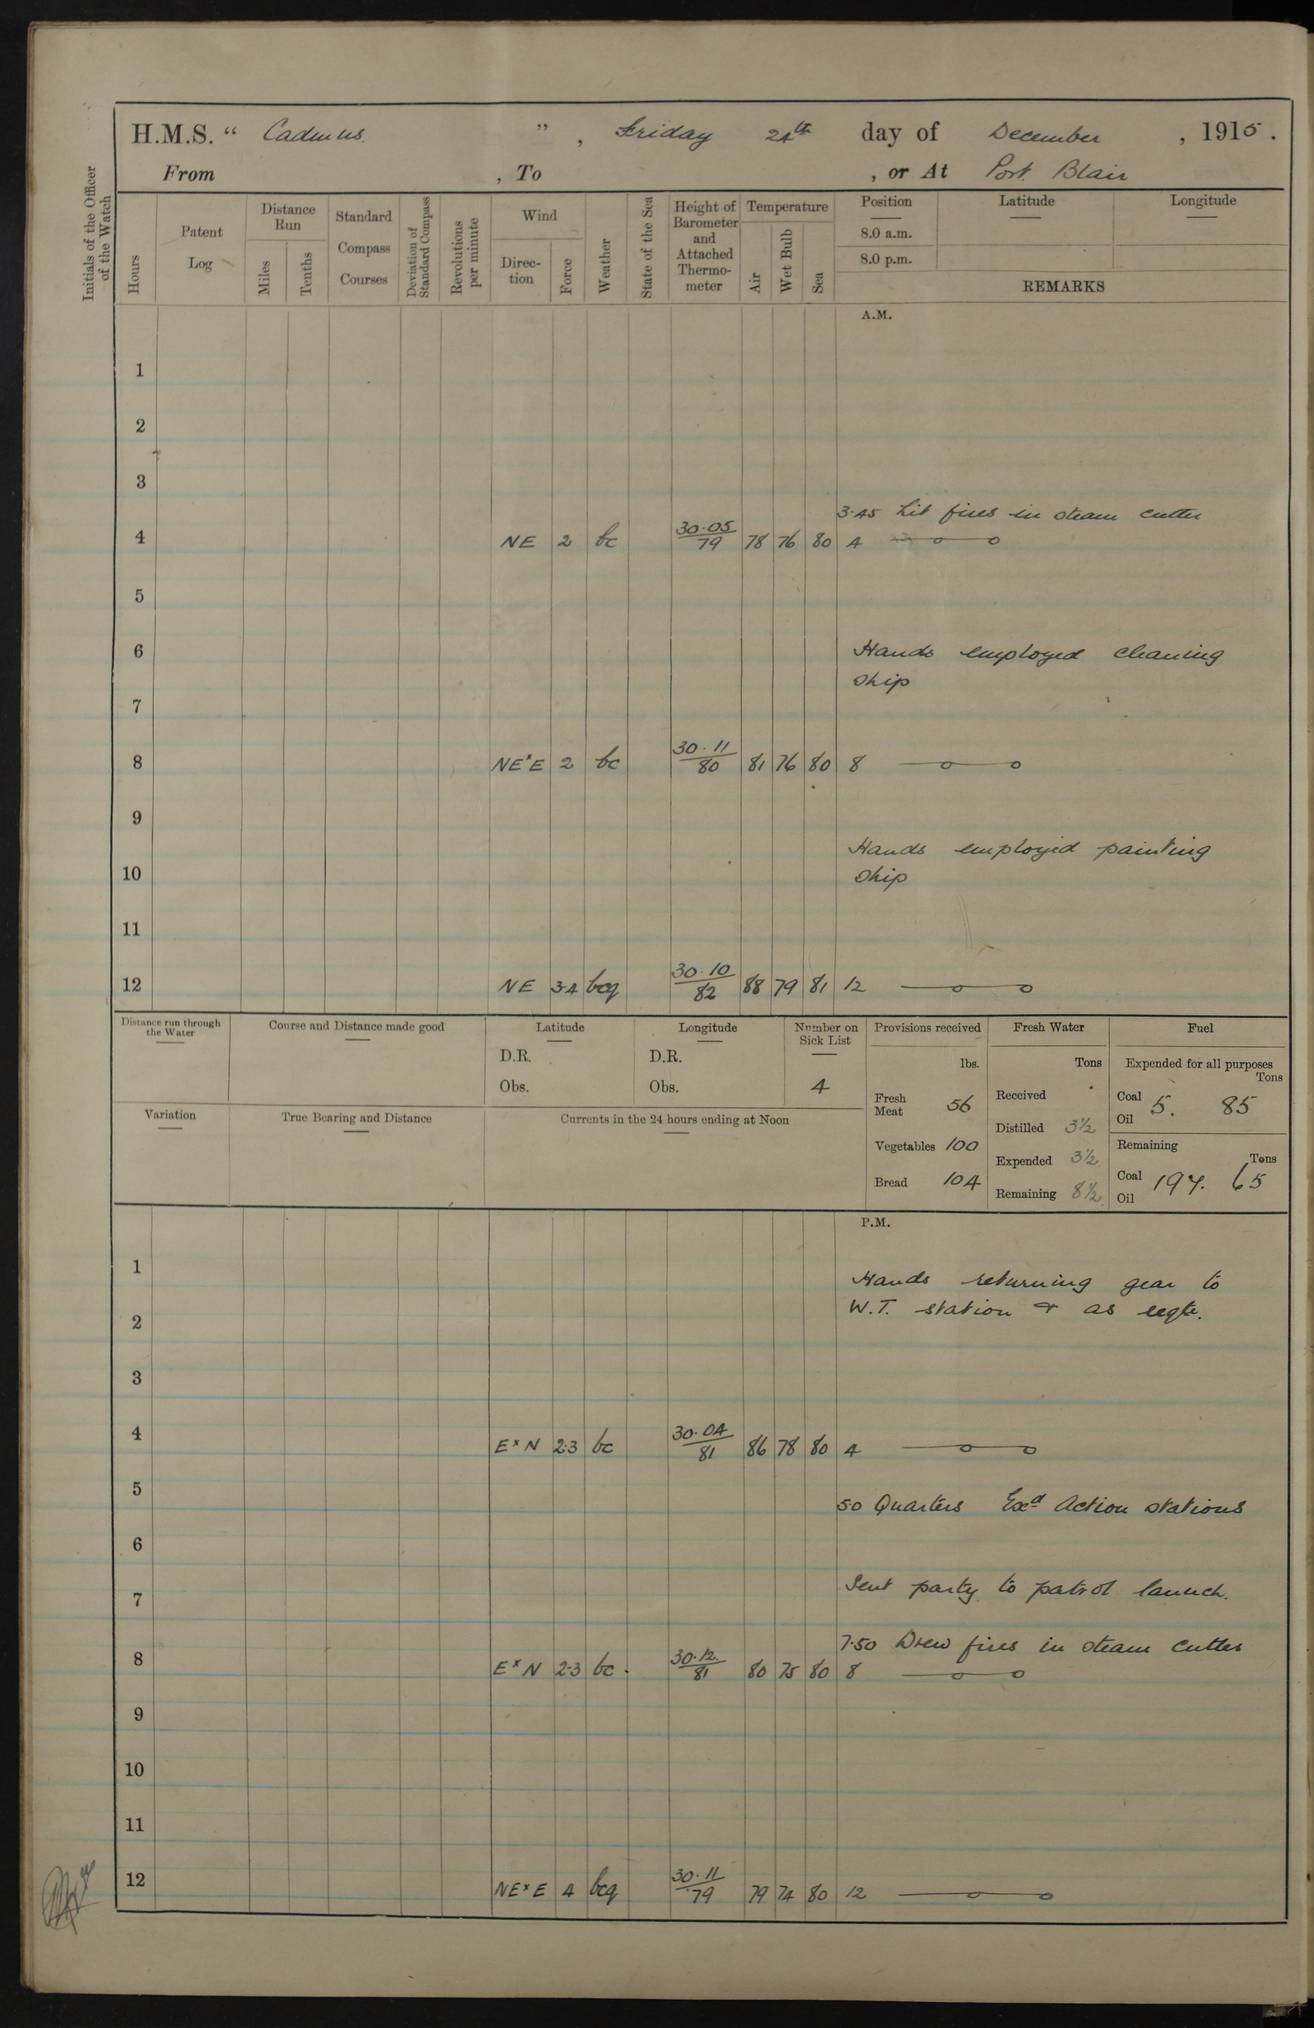 H.M.S. “ Cadmus ” , Friday 24th day of December , 1915 .
From , To , or At Port Blair
Initials of the Officer of the Watch
Hours
Patent Log
Distance Run
Miles
Tenths
Standard Compass Courses
Deviation of Standard Compass
Revolutions per minute
Wind
Direction
Force
Weather
State of the Sea
Height of Barometer and Attached Thermometer
Temperature
Air
Wet Bulb
Sea
Position
8.0 a.m.
8.0 p.m.
Latitude
Longitude
REMARKS
A.M.
1
2
3
3.45 Lit fires in steam cutter
4 NE 2 bc 30.05/79 78 76 80 4
5
6 Hands employed cleaning
ship
7
8 NExE 2 bc 30.11/80 81 76 80 8
9
Hands employed painting
10 ship
11
12 NE 3.4 bcq 30.10/82 88 79 81 12
Distance run through the Water
Course and Distance made good
Latitude
D.R.
Obs.
Longitude
D.R.
Obs.
Number on Sick List
4
Provisions received
lbs.
Fresh Meat 56
Vegetables 100
Bread 104
Fresh Water
Tons
Received
Distilled 3½
Expended 3½
Remaining 8½
Fuel
Expended for all purposes
Tons
Coal 5. 85
Oil
Remaining
Tons
Coal 197. 65
Oil
Variation
True Bearing and Distance
Currents in the 24 hours ending at Noon
P.M.
1 Hands returning gear to
W.T. station & as reqte.
2
3
4 ExN 2.3 bc 30.04/81 86 78 80 4
5 50 Quarters Exd Action stations
6
7 Sent party to patrol launch.
7.50 Drew fires in steam cutter
8 ExN 2.3 bc. 30.12/81 80 75 80 8
9
10
11
12 NExE 4 bcq 30.11/79 79 74 80 12